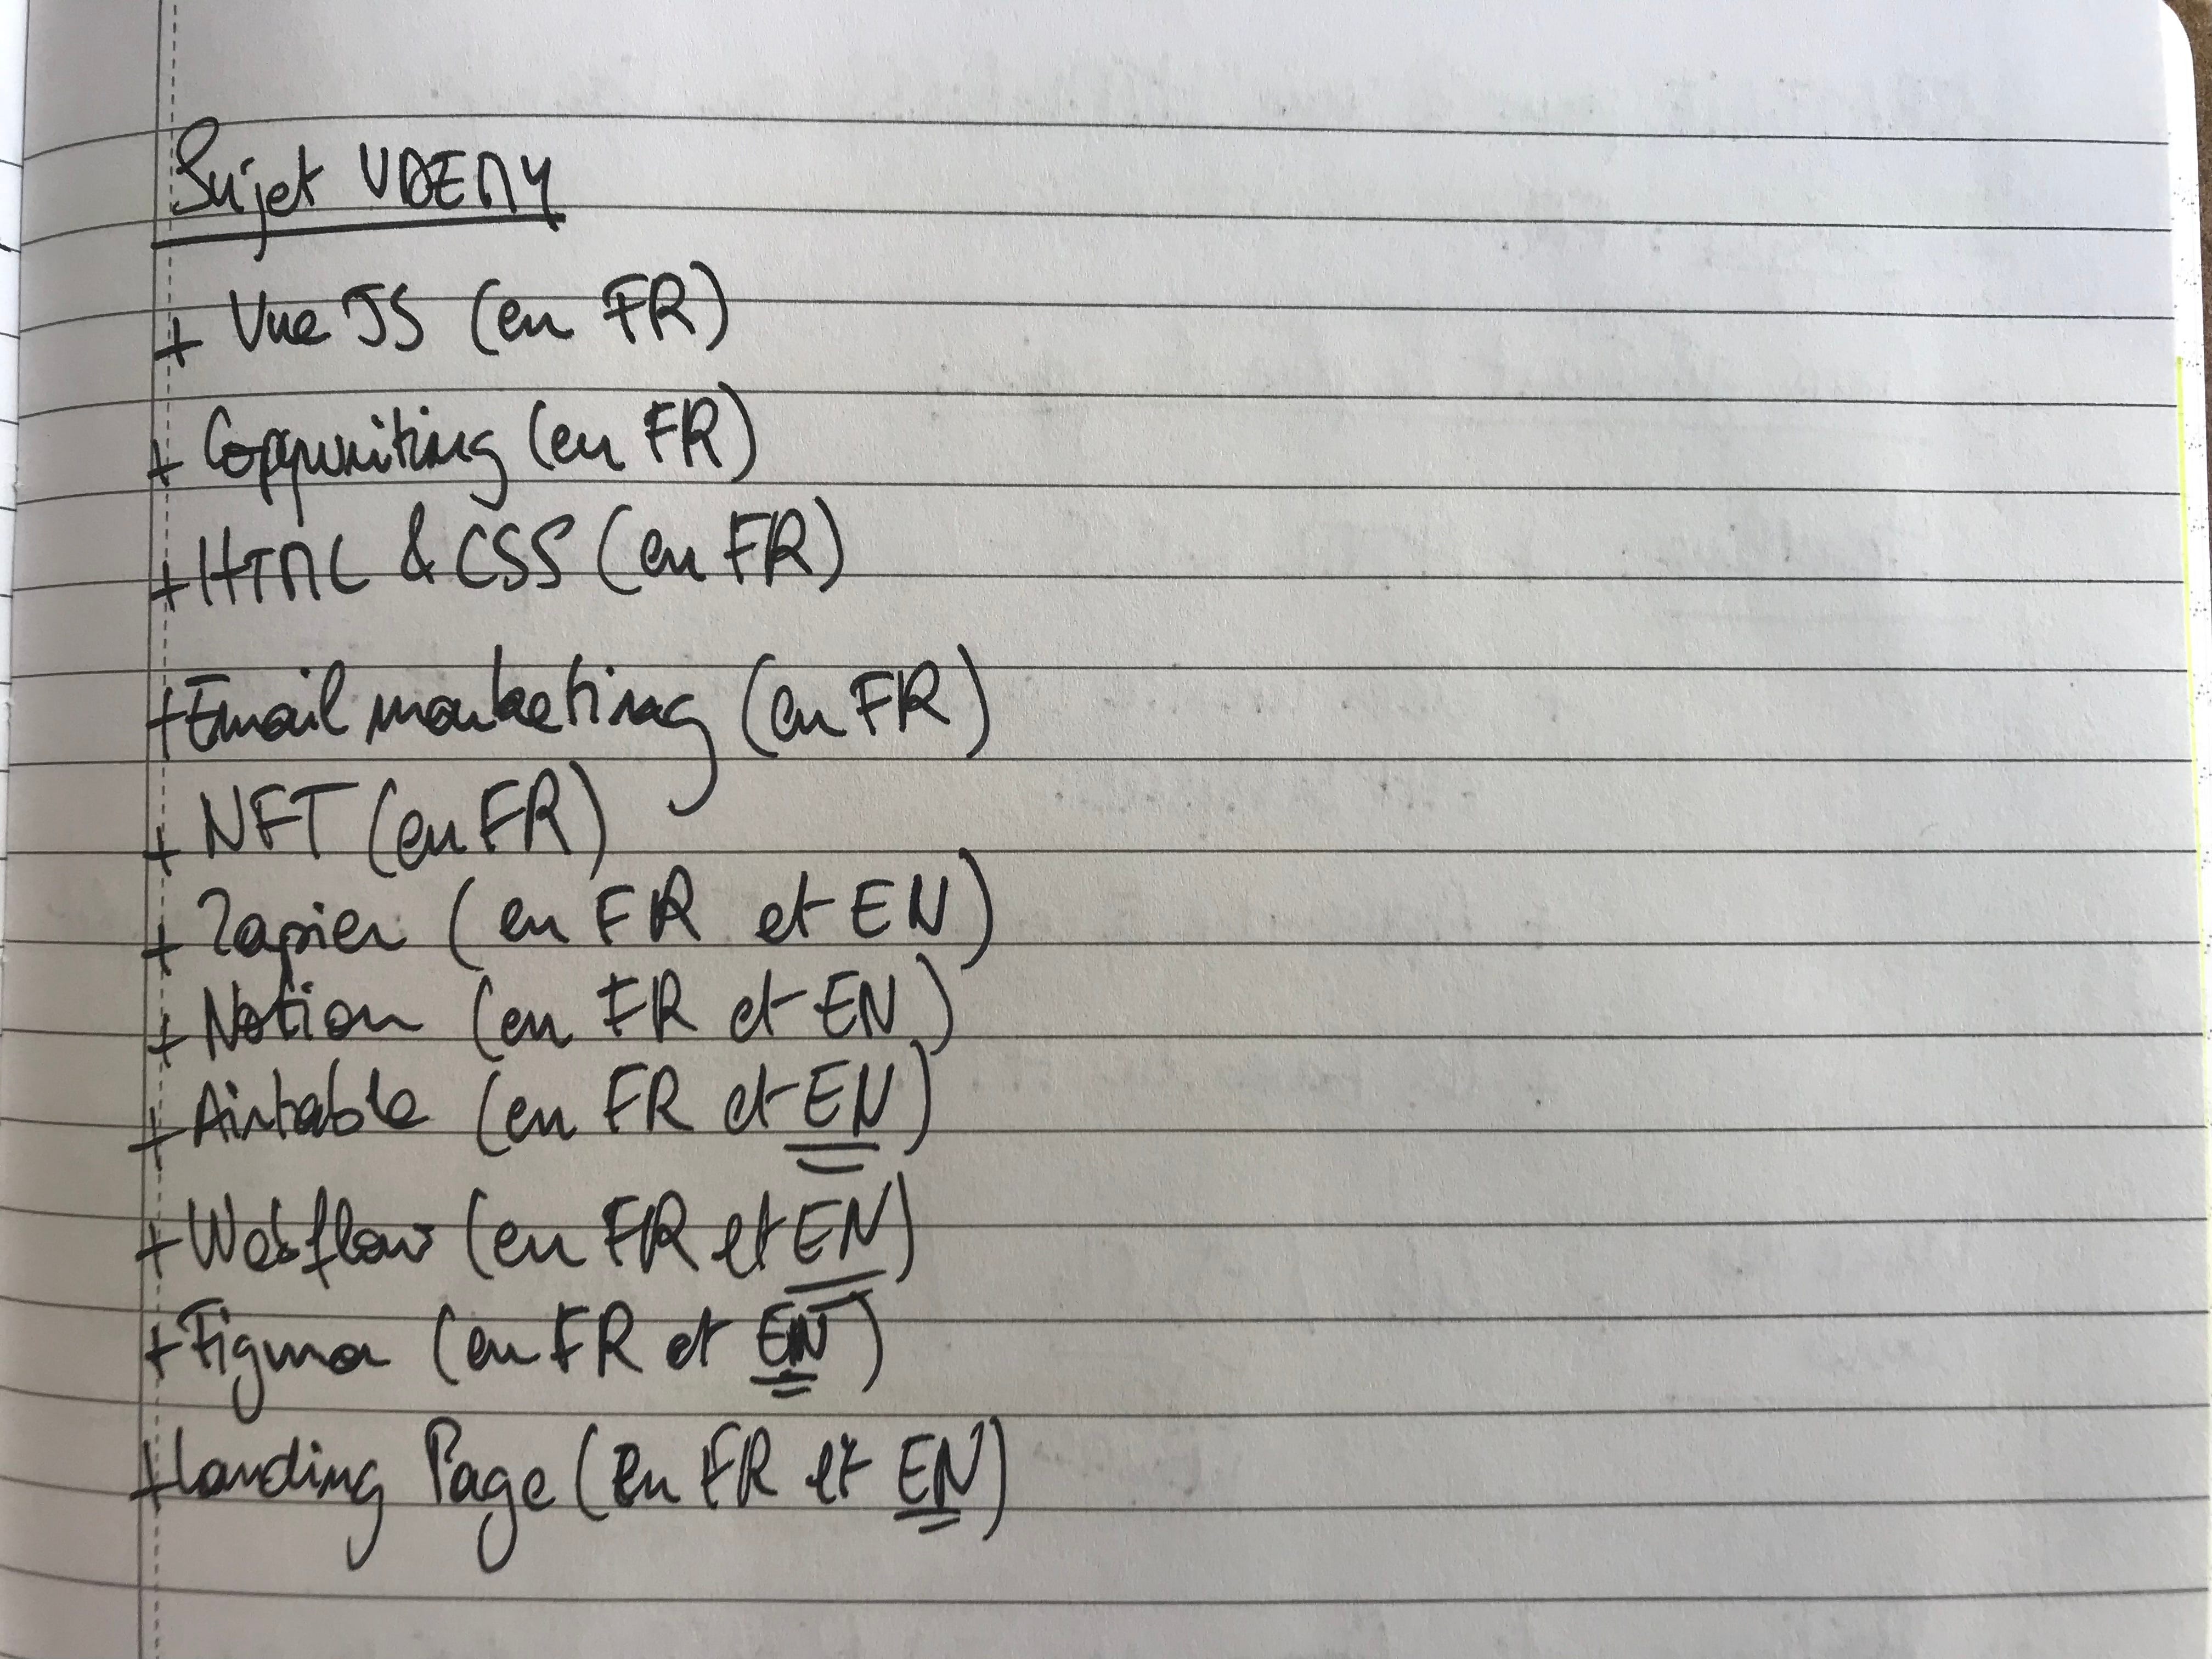 Sujet UDEMY
+ Vue JS (en FR)
+ Copywriting (en FR)
+ HTML & CSS (en FR)
+ Email marketing (en FR)
+ NFT (en FR)
+ Zapier (en FR et EN)
+ Notion (en FR et EN)
+ Airtable (en FR et EN)
+ Webflow (en FR et EN)
+ Figma (en FR et EN)
+ Landing Page (en FR et EN)